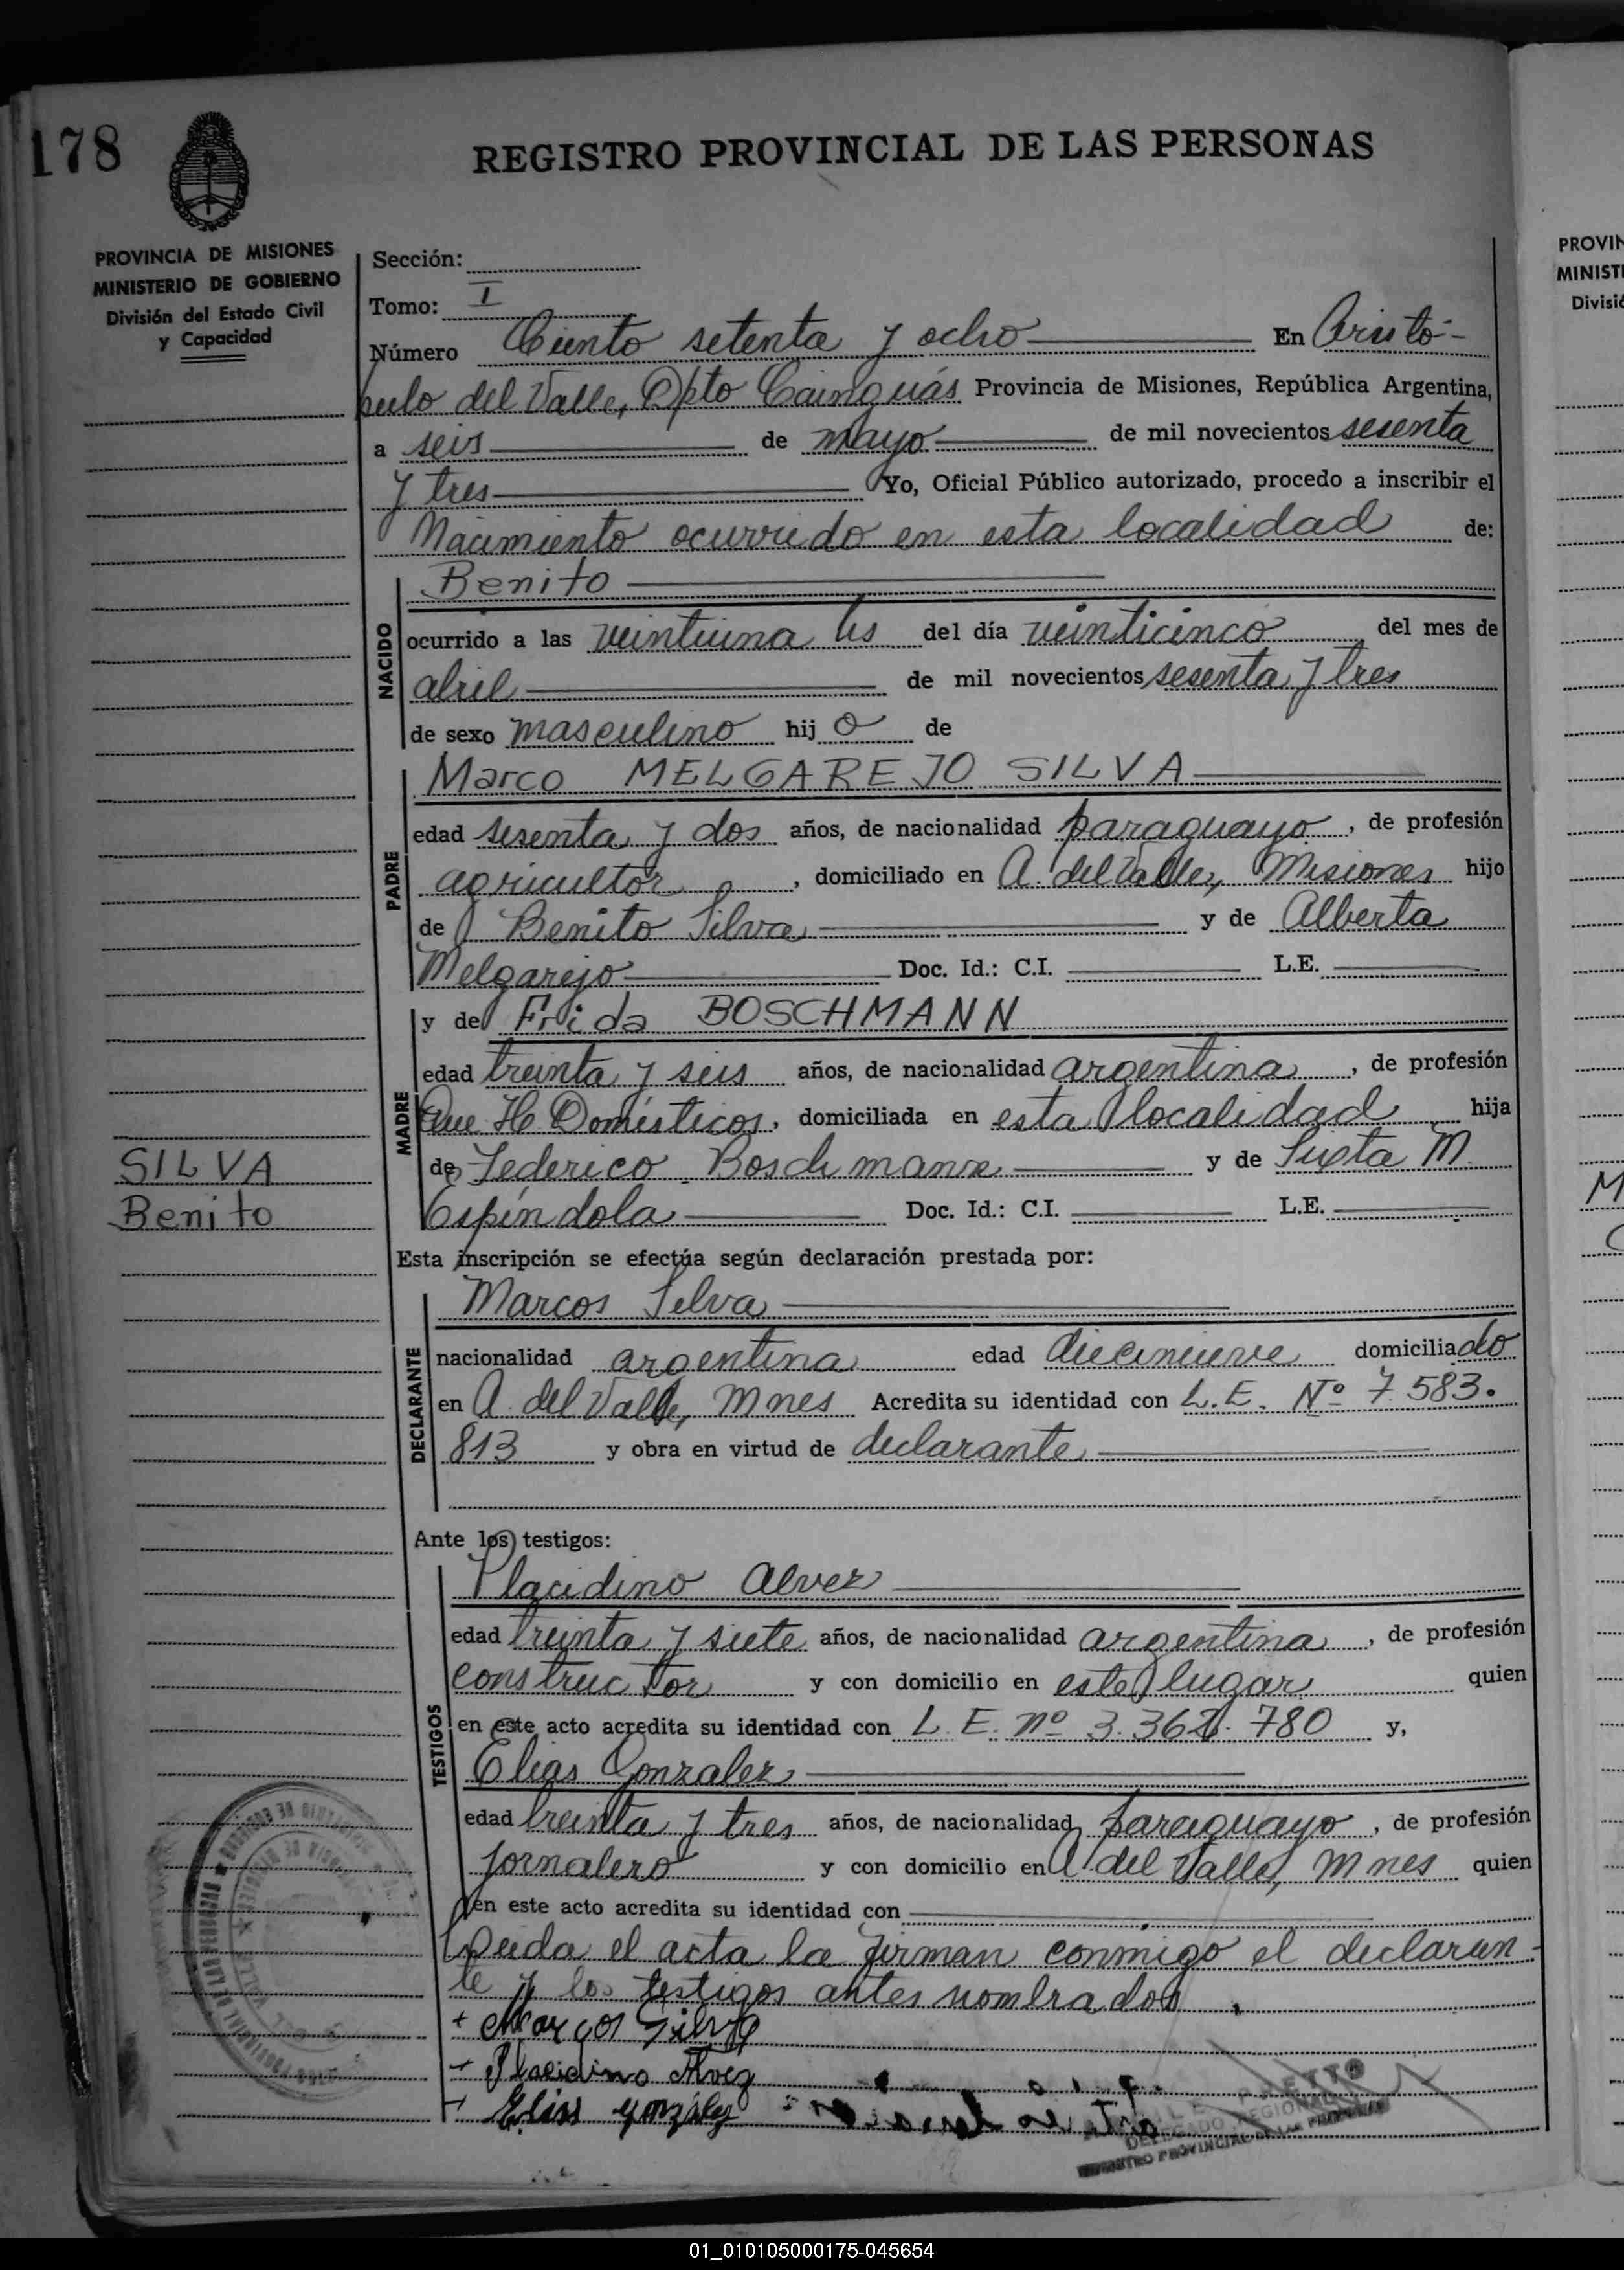 178
REGISTRO PROVINCIAL DE LAS PERSONAS
PROVINCIA DE MISIONES
MINISTERIO DE GOBIERNO
División del Estado Civil
y Capacidad
Sección:
Tomo: I
Número Ciento setenta y ocho En Aristó-
bulo del Valle, Dpto Cainguás Provincia de Misiones, República Argentina,
a seis de mayo de mil novecientos sesenta
y tres Yo, Oficial Público autorizado, procedo a inscribir el
Nacimiento ocurrido en esta localidad de:
NACIDO
Benito
ocurrido a las veintiuna hs del día veinticinco del mes de
abril de mil novecientos sesenta y tres
de sexo masculino hij o de
PADRE
Marco MELGAREJO SILVA
edad sesenta y dos años, de nacionalidad paraguayo, de profesión
agricultor, domiciliado en A. del Valle, Misiones hijo
de Benito Silva y de Alberta
Melgarejo Doc. Id.: C.I. L.E.
MADRE
y de Frida BOSCHMANN
edad treinta y seis años, de nacionalidad argentina, de profesión
Que H. Domésticos, domiciliada en esta localidad hija
de Federico Boschmann y de Sixta M.
Espíndola Doc. Id.: C.I. L.E.
SILVA
Benito
Esta inscripción se efectúa según declaración prestada por:
DECLARANTE
Marcos Silva
nacionalidad argentina edad diecinueve domiciliado
en A. del Valle, Mnes Acredita su identidad con L.E. Nº 7.583.
813 y obra en virtud de declarante
Ante los testigos:
TESTIGOS
Placidino Alvez
edad treinta y siete años, de nacionalidad argentina, de profesión
constructor y con domicilio en este lugar quien
en este acto acredita su identidad con L.E. nº 3.362.780 y,
Elias Gonzalez
edad treinta y tres años, de nacionalidad paraguayo, de profesión
jornalero y con domicilio en A. del Valle, Mnes quien
en este acto acredita su identidad con
Leida el acta la firman conmigo el declaran-
te y los testigos antes nombrados.
+ Marcos Silva
- Placidino Alvez
+ Elias González
DELEGADO REGIONAL
REGISTRO PROVINCIAL DE LAS PERSONAS
PROVIN
MINISTE
Divisió
M
01_010105000175-045654